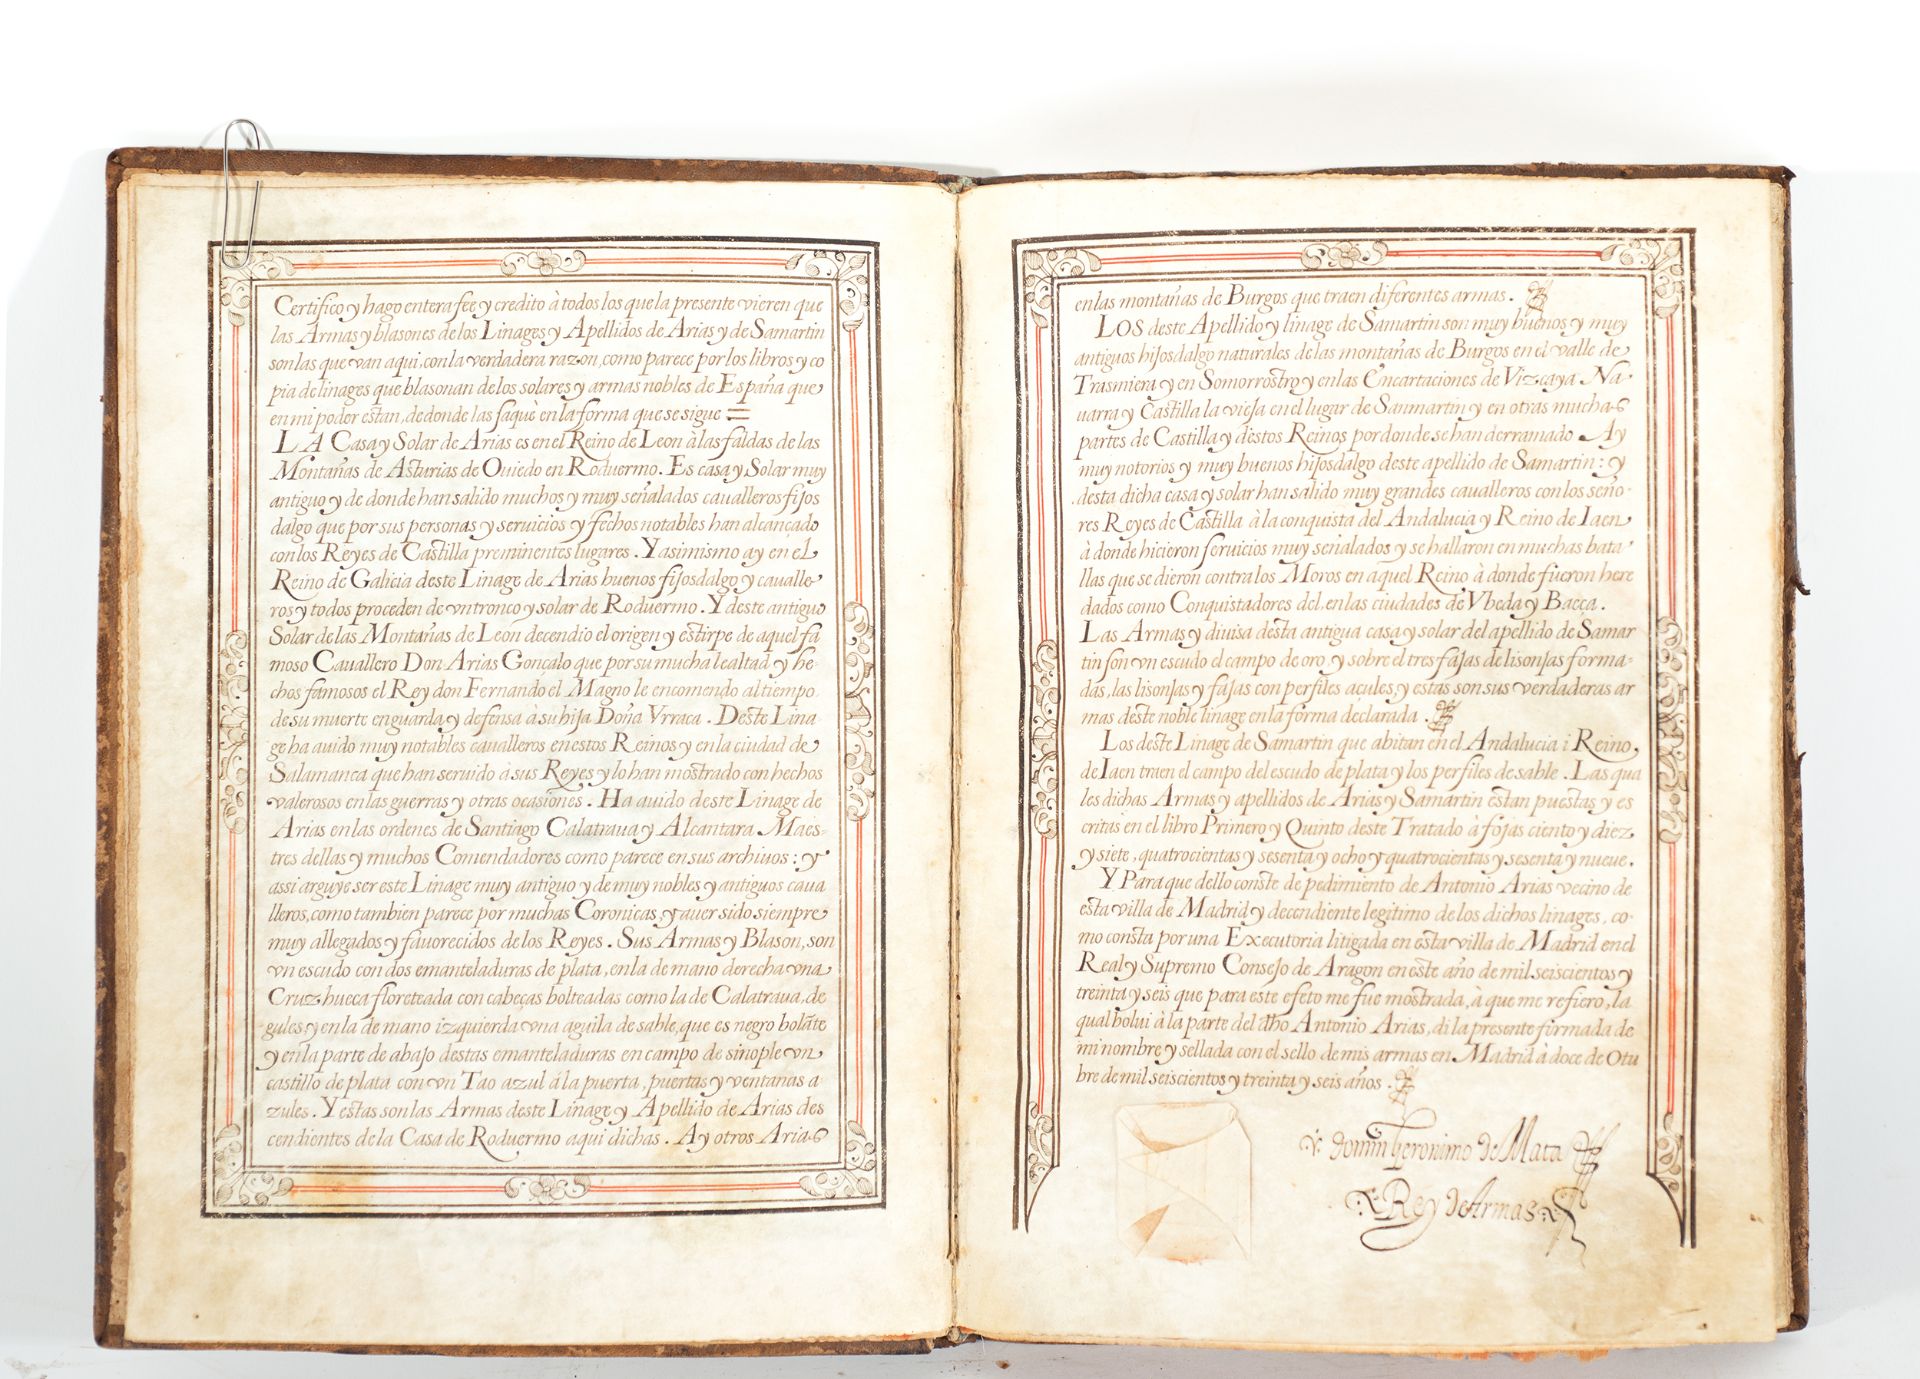 Certifico y hago entera fee y credito à todos los que la presente vieren que
las Armas y blasones de los Linages y Apellidos de Arias y de Samartin
son las que van aqui, con la verdadera razon, como parece por los libros y co
pia de linages que blasonan de los solares y armas nobles de España que
en mi poder estan, de donde las saquè en la forma que se sigue =
LA Casa y Solar de Arias es en el Reino de Leon à las faldas de las
Montañas de Asturias de Ouiedo en Roduermo. Es casa y Solar muy
antiguo y de donde han salido muchos y muy señalados caualleros fijos
dalgo que por sus personas y seruicios y fechos notables han alcançado
con los Reyes de Castilla preminentes lugares. Y asimismo ay en el
Reino de Galicia deste Linage de Arias buenos fijosdalgo y caualle
ros y todos proceden de vn tronco y solar de Roduermo. Y deste antiguo
Solar de las Montañas de Leon decendio el origen y estirpe de aquel fa
moso Cauallero Don Arias Gonçalo que por su mucha lealtad y he-
chos famosos el Rey don Fernando el Magno le encomendo al tiempo
de su muerte en guarda y defensa à su hija Doña Vrraca. Deste Lina
ge ha auido muy notables caualleros en estos Reinos y en la ciudad de
Salamanca que han seruido à sus Reyes y lo han mostrado con hechos
valerosos en las guerras y otras ocasiones. Ha auido deste Linage de
Arias en las ordenes de Santiago Calatraua y Alcantara Maes-
tres dellas y muchos Comendadores como parece en sus archiuos: y
assi arguye ser este Linage muy antiguo y de muy nobles y antiguos caua
lleros, como tambien parece por muchas Coronicas, y auer sido siempre
muy allegados y fauorecidos de los Reyes. Sus Armas y Blason, son
vn escudo con dos emanteladuras de plata, en la de mano derecha vna
Cruz hueca floreteada con cabeças bolteadas como la de Calatraua, de
gules, y en la de mano izquierda vna aguila de sable, que es negro bolāte
y en la parte de abajo destas emanteladuras en campo de sinople vn
castillo de plata con vn Tao azul á la puerta, puertas y ventanas a
zules. Y estas son las Armas deste Linage y Apellido de Arias des
cendientes de la Casa de Roduermo aqui dichas. Ay otros Arias
en las montañas de Burgos que traen diferentes armas.
LOS deste Apellido y linage de Samartin son muy buenos y muy
antiguos hijosdalgo naturales de las montañas de Burgos en el valle de
Trasmiera y en Somorrostro y en las Encartaciones de Vizcaya Na-
uarra y Castilla la vieja en el lugar de Sanmartin y en otras muchas
partes de Castilla y destos Reinos por donde se han derramado Ay
muy notorios y muy buenos hijosdalgo deste apellido de Samartin: y
desta dicha casa y solar han salido muy grandes caualleros con los seño-
res Reyes de Castilla à la conquista del Andalucia y Reino de Iaen
à donde hicieron seruicios muy señalados y se hallaron en muchas bata
llas que se dieron contra los Moros en aquel Reino à donde fueron here
dados como Conquistadores del, en las ciudades de Vbeda y Baeça.
Las Armas y diuisa desta antigua casa y solar del apellido de Samar
tin son vn escudo el campo de oro, y sobre el tres fajas de lisonjas forma-
das, las lisonjas y fajas con perfiles açules, y estas son sus verdaderas ar
mas deste noble linage en la forma declarada.
Los deste Linage de Samartin que abitan en el Andalucia i Reino
de Iaen traen el campo del escudo de plata y los perfiles de sable. Las qua
les dichas Armas y apellidos de Arias y Samartin estan puestas y es
critas en el libro Primero y Quinto deste Tratado à fojas ciento y diez
y siete, quatrocientas y sesenta y ocho y quatrocientas y sesenta y nueue.
Y Para que dello conste de pedimiento de Antonio Arias vecino de
esta villa de Madrid y decendiente legitimo de los dichos linages, co-
mo consta por una Executoria litigada en esta villa de Madrid en el
Real y Supremo Consejo de Aragon en este año de mil seiscientos y
treinta y seis que para este efeto me fue mostrada, à que me refiero, la
qual bolui à la parte del dho Antonio Arias, di la presente firmada de
mi nombre y sellada con el sello de mis armas en Madrid à doce de Otu
bre de mil seiscientos y treinta y seis años.
Geronimo de Mata
Rey de Armas